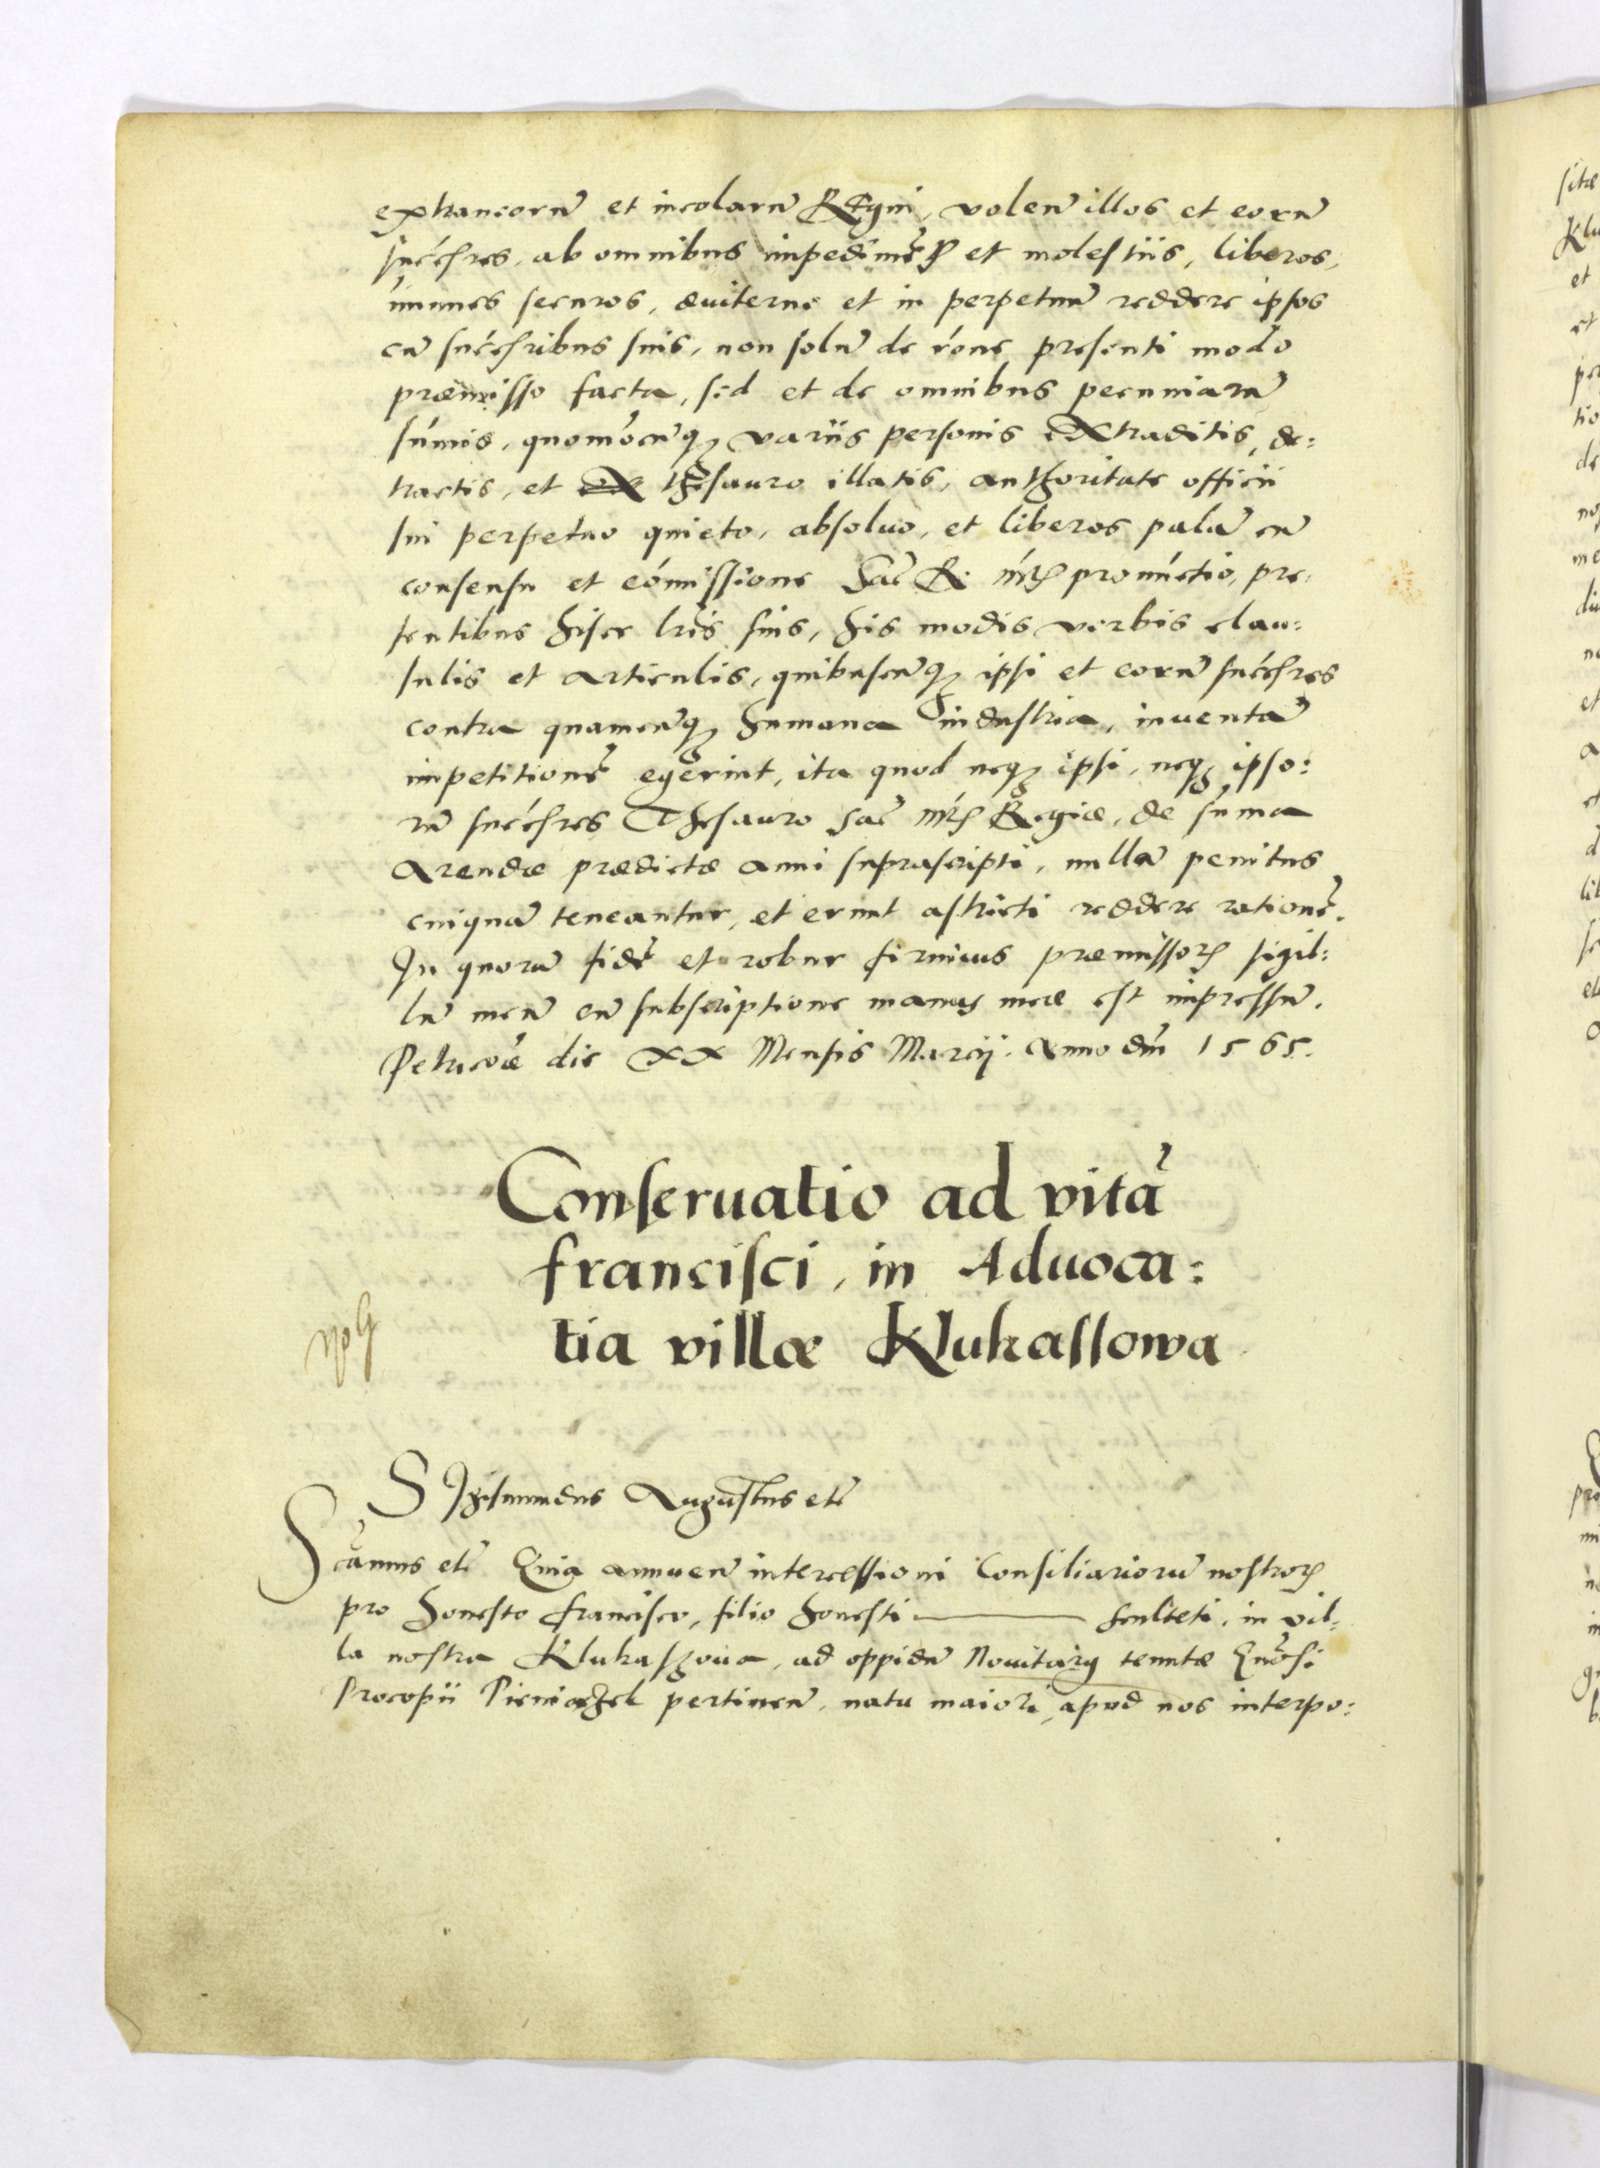 extraneorũ et incolarũ Regni, volen̄ illos et eorũ
succ̄sres, ab omnibus impedimẽ et molestiis, liberos,
im̄unes securos, æviterne et in perpetuũ reddere ipsos
cũ succ̄sribus suis, non solũ de rōne presenti modo
præmisso facta, sed et de omnibus pecuniarũ
sūmis, quomōcũq; variis personis extraditis, de:
tractis, et ex thesauro illatis, authoritate officii
sui perpetuo quieto, absoluo, et liberos palã cũ
consensu et cōmissione Sac̄ R. pronūctio, pre:
sentibus hisce lris̄ suis, his modis verbis clau:
sulis et articulis, quibuscũq; ipsi et eorũ succ̄sres
contra quamcũq; humana industria, inventã
impetitionẽ egerint, ita quod neq; ipsi, neq; ipso:
rũ succ̄sres Thesauro Sac̄ Regiæ, de sūma
Arendæ prædictæ anni suprascripti, nullã penitus
cuiquã teneantur, et erunt astricti reddere rationẽ.
In quorũ fidẽ et robur firmius præmissorꝝ sigil:
lũ meũ cũ subscriptione manus meæ est impressũ.
Petricoviæ die XX Mensis Marcij. Anno dñi 1565.
Conseruatio ad vitã
francisci, in Aduoca:
tia villæ Klukassowa
SIgismundus Augustus etc̄
Sc̄amus etc̄ Quia annuen̄ intercessioni Consiliariorũ nostrorꝝ
pro honesto francisco, filio honesti ——— sculteti, in vil:
la nostra Klukaszoua, ad oppidũ Nouitarg tenutæ
Procopii Pieniązek pertinen̄, natu maiori, apud nos interpo: